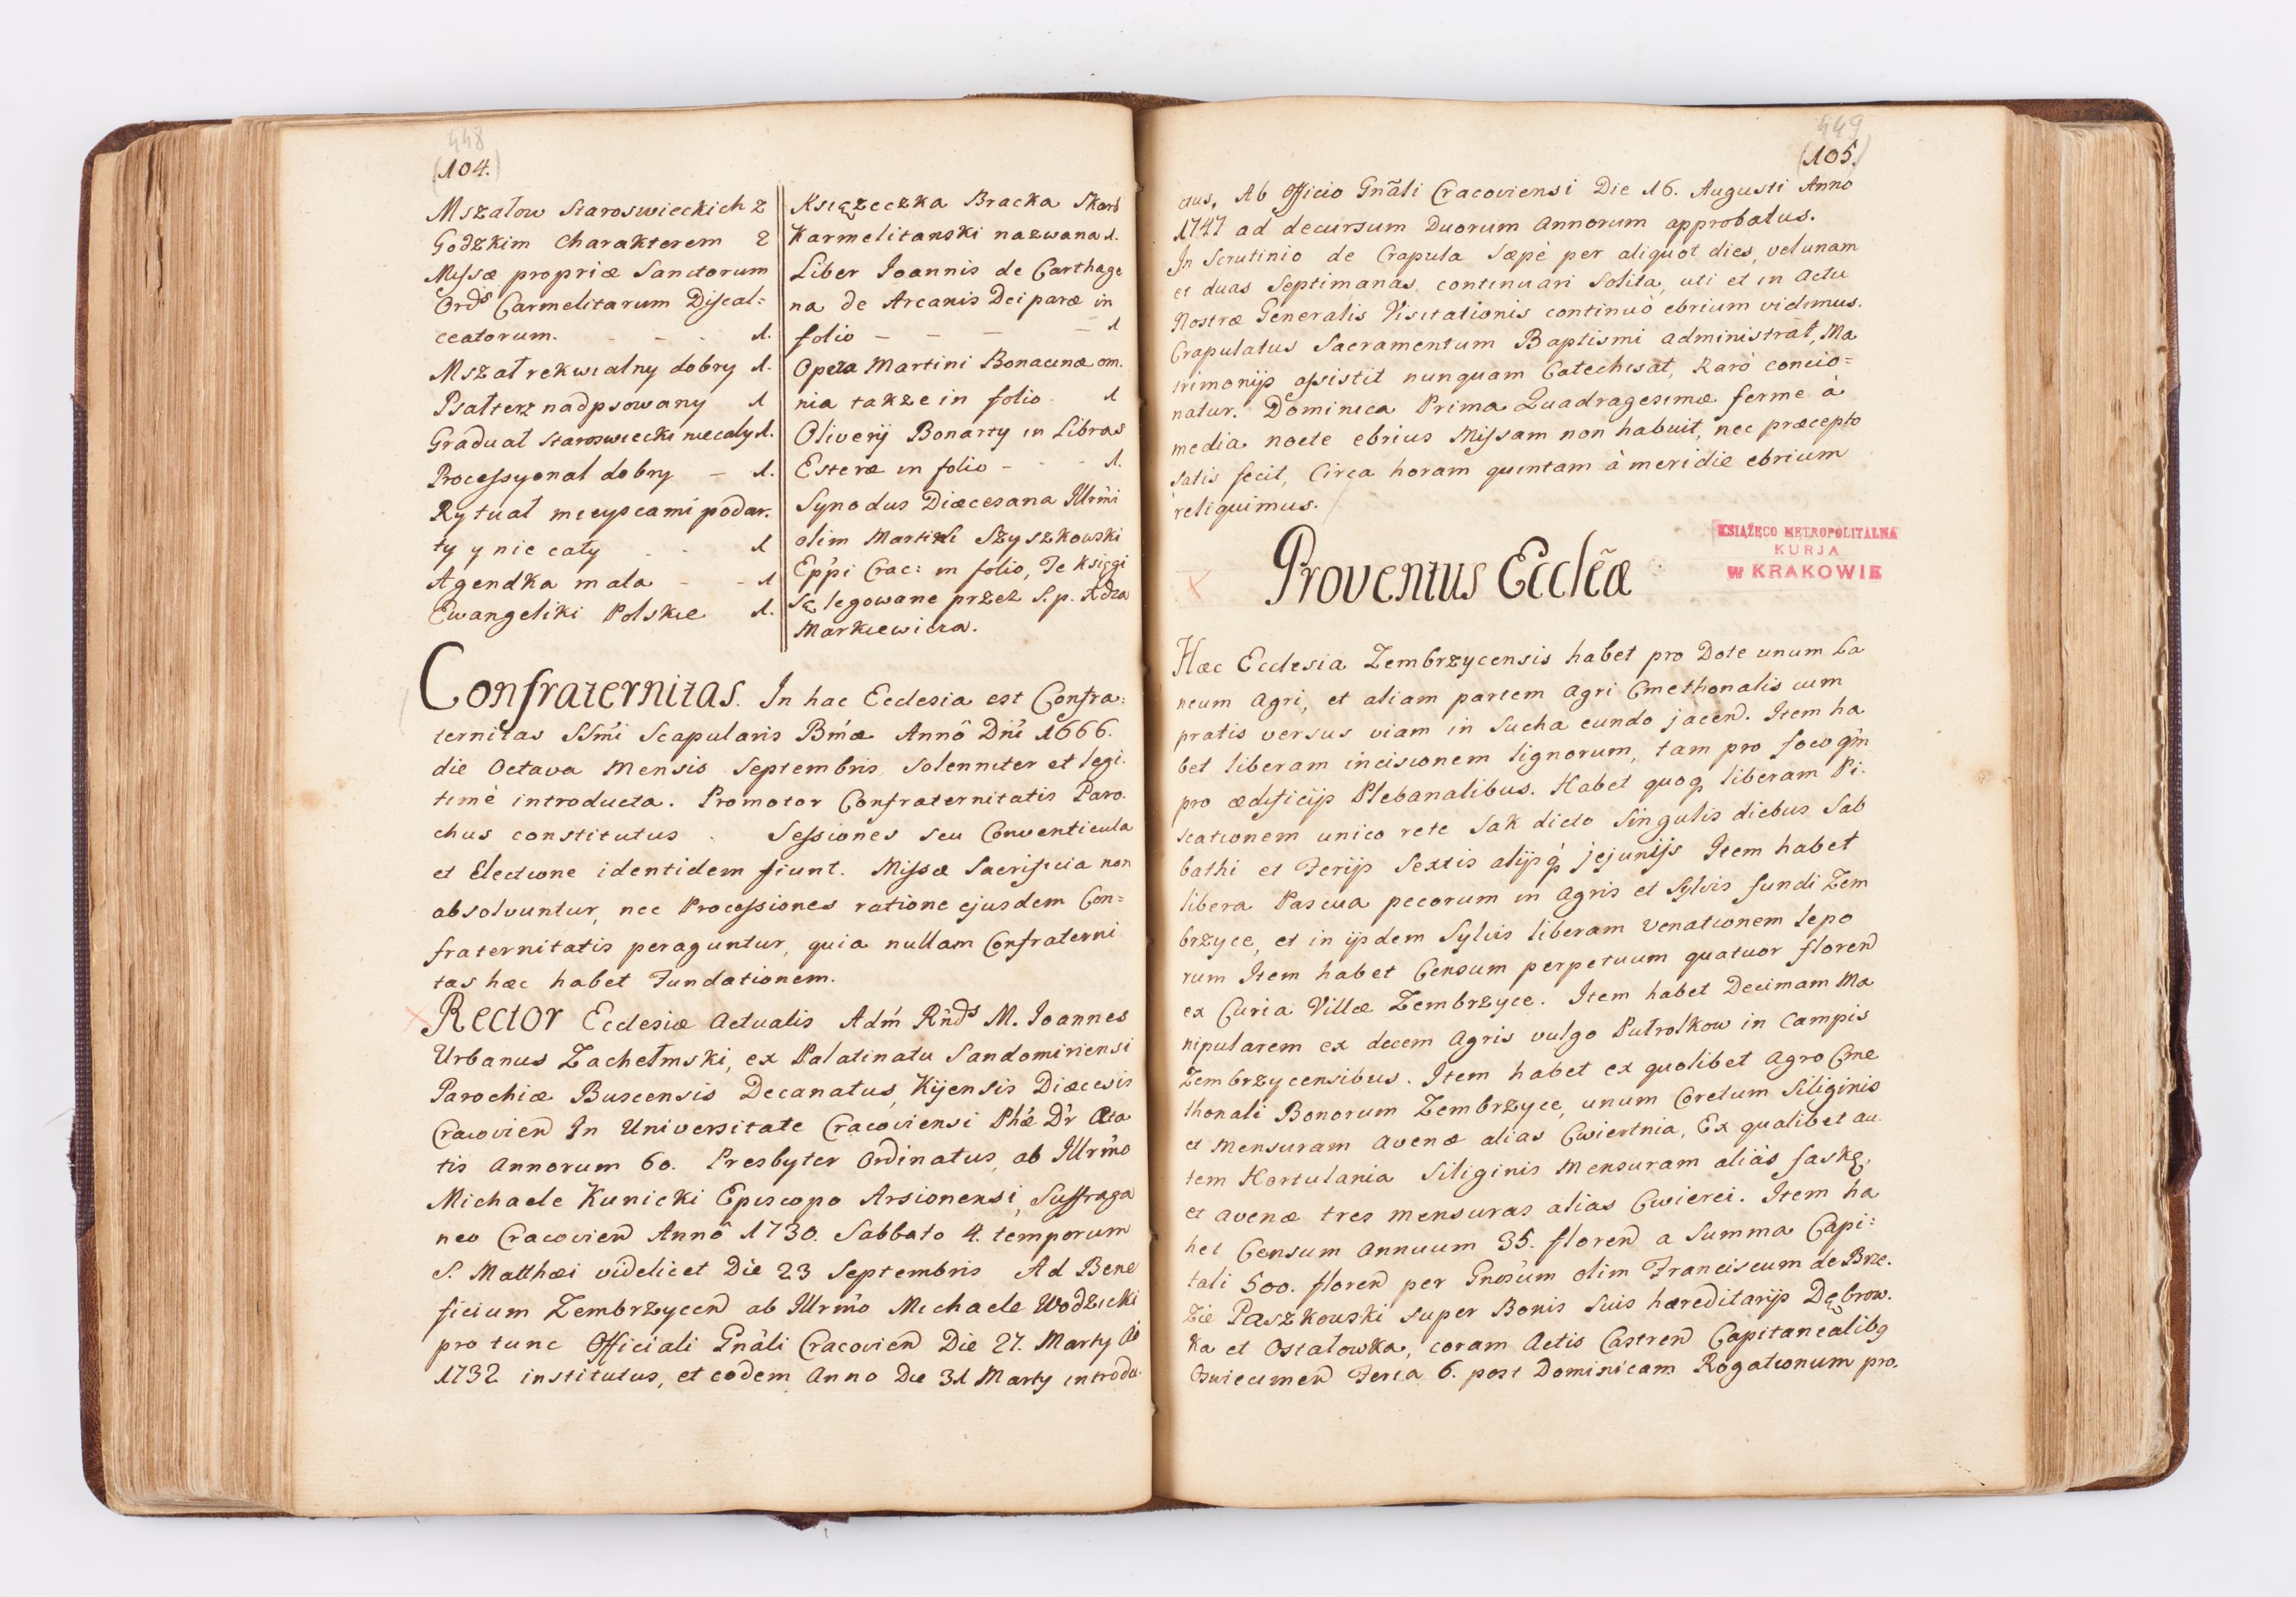 448
(104.)
Mszałow Staroswieckich z
Godzkim Charakterem 2
Missæ propriæ Sanctorum
Ord͂s Carmelitarum Discal=
ceatorum. - - - 1.
Mszał rekwialny dobry 1.
Psałterz nadpsowany 1
Graduał staroswiecki niecały 1.
Processyonał dobry - 1.
Rytuał mieyscami podar-
ty y nie cały - - 1
Agendka mała - - 1
Ewangeliki Polskie 1.
Książeczka Bracka Skarb
Karmelitanski nazwana 1.
Liber Joannis de Carthage
na de Arcanis Deiparæ in
folio - - - - 1
Opera Martini Bonacinæ om.
nia także in folio - 1
Oliverij Bonarty in Libros
Esteræ in folio - - - 1.
Synodus Diæcesana Illrm̃i
olim Martini Szyszkowski
Epp̃i Crac: in folio, Te Księgi
są legowane przez S.p. Xdza
Markiewicza.
Confraternitas. In hac Ecclesia est Confra:
ternitas SSm̃i Scapularis Bm̃æ Annô Dn̄i 1666.
die Octava Mensis Septembris Solenniter et legi-
timè introducta. Promotor Confraternitatis Paro-
chus constitutus . Sessiones seu Conventicula
et Electione identidem fiunt. Missæ Sacrificia non
absolvuntur, nec Processiones ratione ejusdem Con=
fraternitatis peraguntur, quia nullam Confraterni
tas hæc habet Fundationem.
Rector Ecclesiæ Actualis Adm̃ Rn̄ds M. Joannes
Urbanus Zachełmski, ex Palatinatu Sandomiriensi
Parochiæ Buscensis Decanatus Kijensis Diæcesis
Cracovien̄ In Universitate Cracoviensi Phæ Dr Æta
tis Annorum 60. Presbyter Ordinatus ab Illrm̃o
Michaele Kunicki Episcopo Arsionensi, Suffraga
neo Cracovien̄ Annô 1730. Sabbato 4. temporum
S. Matthæi videlicet Die 23 Septembris Ad Bene
ficium Zembrzycen̄ ab Illrm̃o Michaele Wodzicki
pro tunc Officiali Gn̄ali Cracovien̄ Die 27. Marty Aô
1732 institutus, et eodem Anno Die 31 Marty introdu-
449
(105.)
ctus, Ab Officio Gn̄ali Cracoviensi Die 16. Augusti Anno
1747 ad decursum Duorum Annorum approbatus.
In Scrutinio de Crapula Sæpè per aliquot dies, vel unam
et duas Septimanas continuari Solita, uti et in Actu
Nostræ Generalis Visitationis continuò ebrium vidimus.
Crapulatus Sacramentum Baptismi administrat, Ma
trimonijs assistit nunquam Catechisat, Rarò concio=
natur. Dominica Prima Quadragesimæ ferme à
media nocte ebrius Missam non habuit, nec præcepto
satis fecit, Circa horam quintam à meridie ebrium
reliquimus.
Proventus Ecclẽæ
KSIĄŻĘCO METROPOLITALNA
KURJA
W KRAKOWIE
Hæc Ecclesia Zembrzycensis habet pro Dote unum La
neum Agri, et aliam partem Agri Cmethonalis cum
pratis versus viam in Sucha eundo jacen̄. Item ha
bet liberam incisionem lignorum, tam pro foco qm̃
pro ædificijs Plebanalibus. Habet quoq liberam Pi-
scationem unico rete Sak dicto Singulis diebus Sab
bathi et Ferijs Sextis alijsq jejunijs Item habet
libera Pascua pecorum in Agris et Sylvis fundi Zem
brzyce, et in ijsdem Sylvis liberam Venationem lepo
rum Item habet Censum perpetuum quatuor floren̄
ex Curia Villæ Zembrzyce. Item habet Decimam Ma
nipularem ex decem Agris vulgo Putrolkow in Campis
Zembrzycensibus. Item habet ex quolibet Agro Cme
thonali Bonorum Zembrzyce, unum Coretum Siliginis
et Mensuram Avenæ alias Cwiertnia, Ex qualibet au-
tem Hortulania Siliginis Mensuram alias faskę,
et Avenæ tres mensuras alias Cwierci. Item ha
bet Censum Annuum 35. floren̄ a Summa Capi:
tali 500. floren̄ per Gnosum olim Franciscum de Brze-
zie Paszkowski super Bonis Suis hæreditarijs Dąbrow-
ka et Ostałowka, coram Actis Castren̄ Capitanealibq
Oswiecimen̄ Feria 6. post Dominicam Rogationum pro-